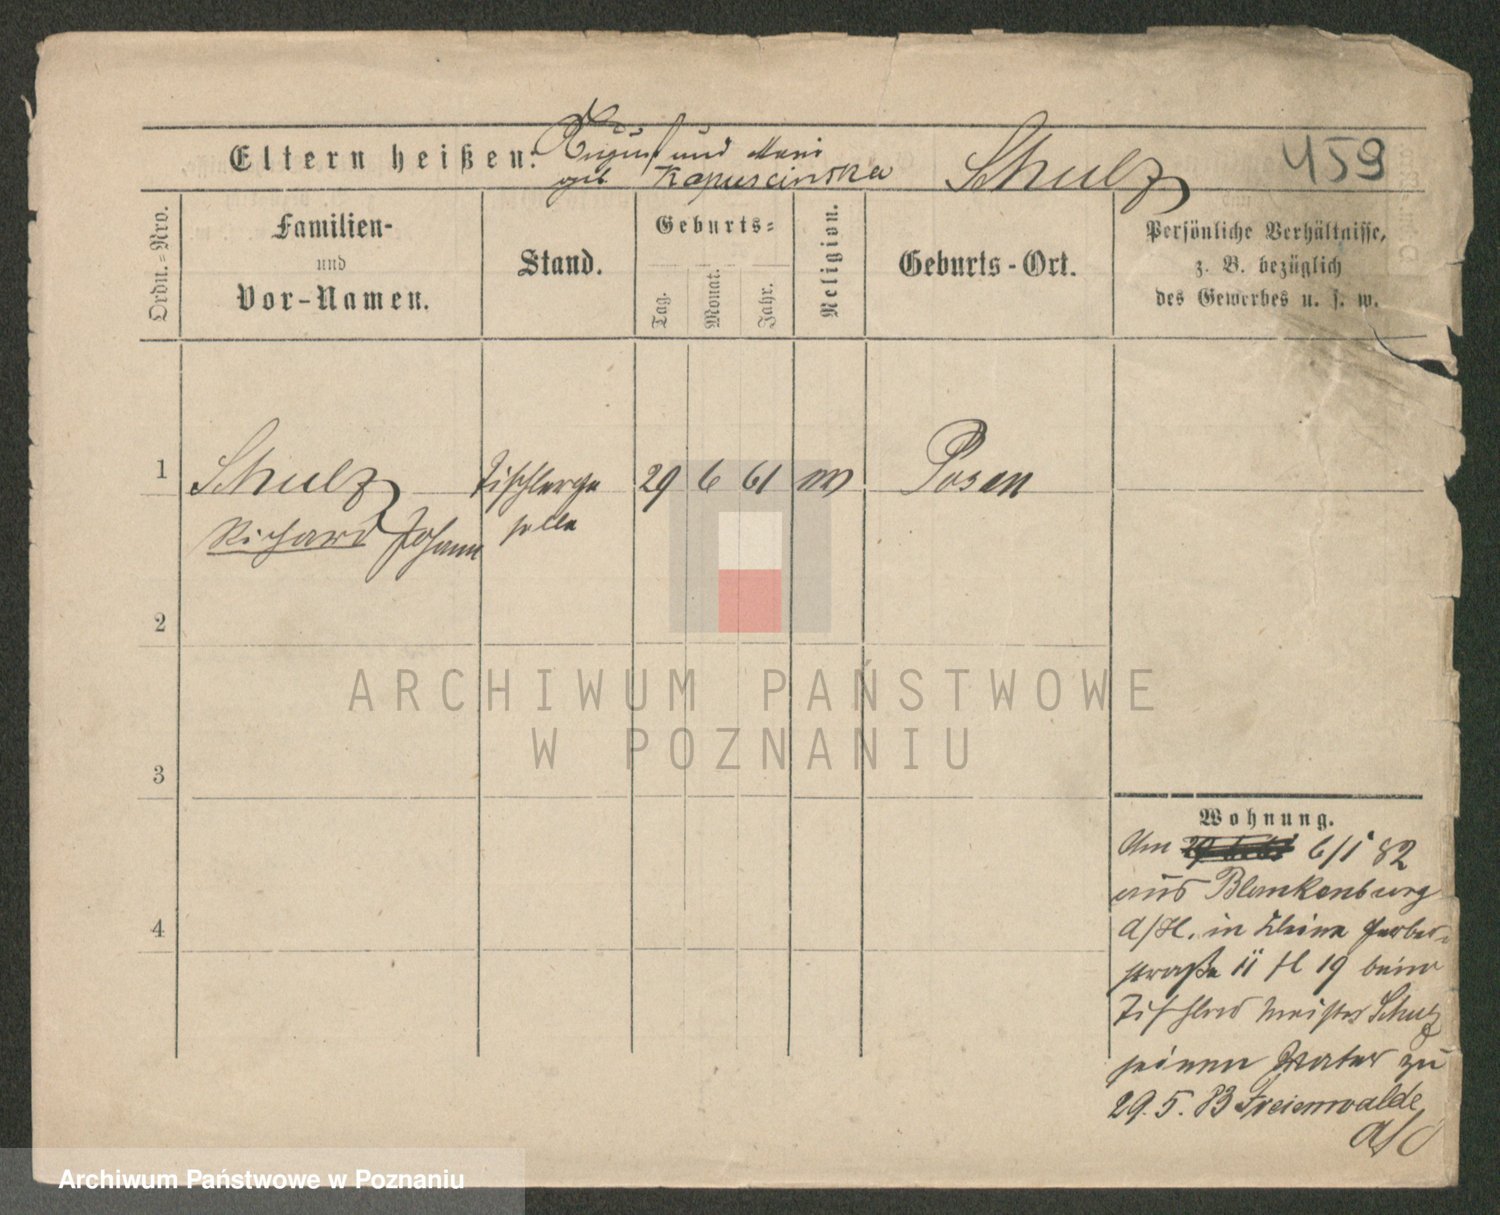 Eltern heißen: August und Marie Schulz 459
geb Kapuscinska
Ordn.-Nro.
Familien-
und
Vor-Namen.
Stand.
Geburts-
Tag.
Monat.
Jahr.
Religion.
Geburts-Ort.
Persönliche Verhältnisse,
z. B. bezüglich
des Gewerbes u. s. w.
1 Schulz Tischlerge 29 6 61 Posen
Richard Johann selle
2
3
4
Wohnung.
Am 6/1 82
aus Blankenburg
a/H. in Kleine Gerber-
straße 19 beim
Tischler Meister Schulz
seinen Vater zu
29. 5. 83 Freienwalde
a/O
ARCHIWUM PAŃSTWOWE
W POZNANIU
Archiwum Państwowe w Poznaniu